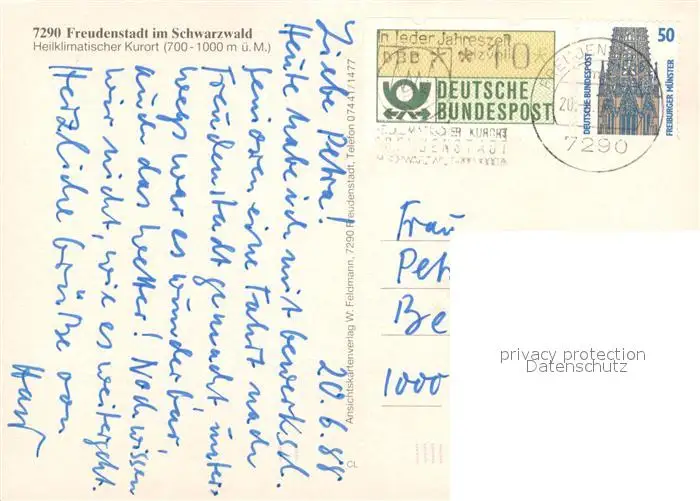 7290 Freudenstadt im Schwarzwald
Heilklimatischer Kurort (700-1000 m ü.M.)
20.6.88
Liebe Petra!
Heute habe ich mit
Senioren eine Fahrt nach
Freudenstadt gemacht. Unter-
wegs war es wunderbar
auch das Wetter! Noch wissen
wir nicht, wie es weitergeht.
Herzliche Grüße von
Ansichtskartenverlag W. Feldmann, 7290 Freudenstadt, Telefon 07441/1477
CL
In jeder Jahreszeit
DBP
DEUTSCHE
BUNDESPOST
50
DEUTSCHE BUNDESPOST
FREIBURGER MÜNSTER
KURORT
FREUDENSTADT
7290
Frau
Pet
Be
1000
privacy protection
Datenschutz